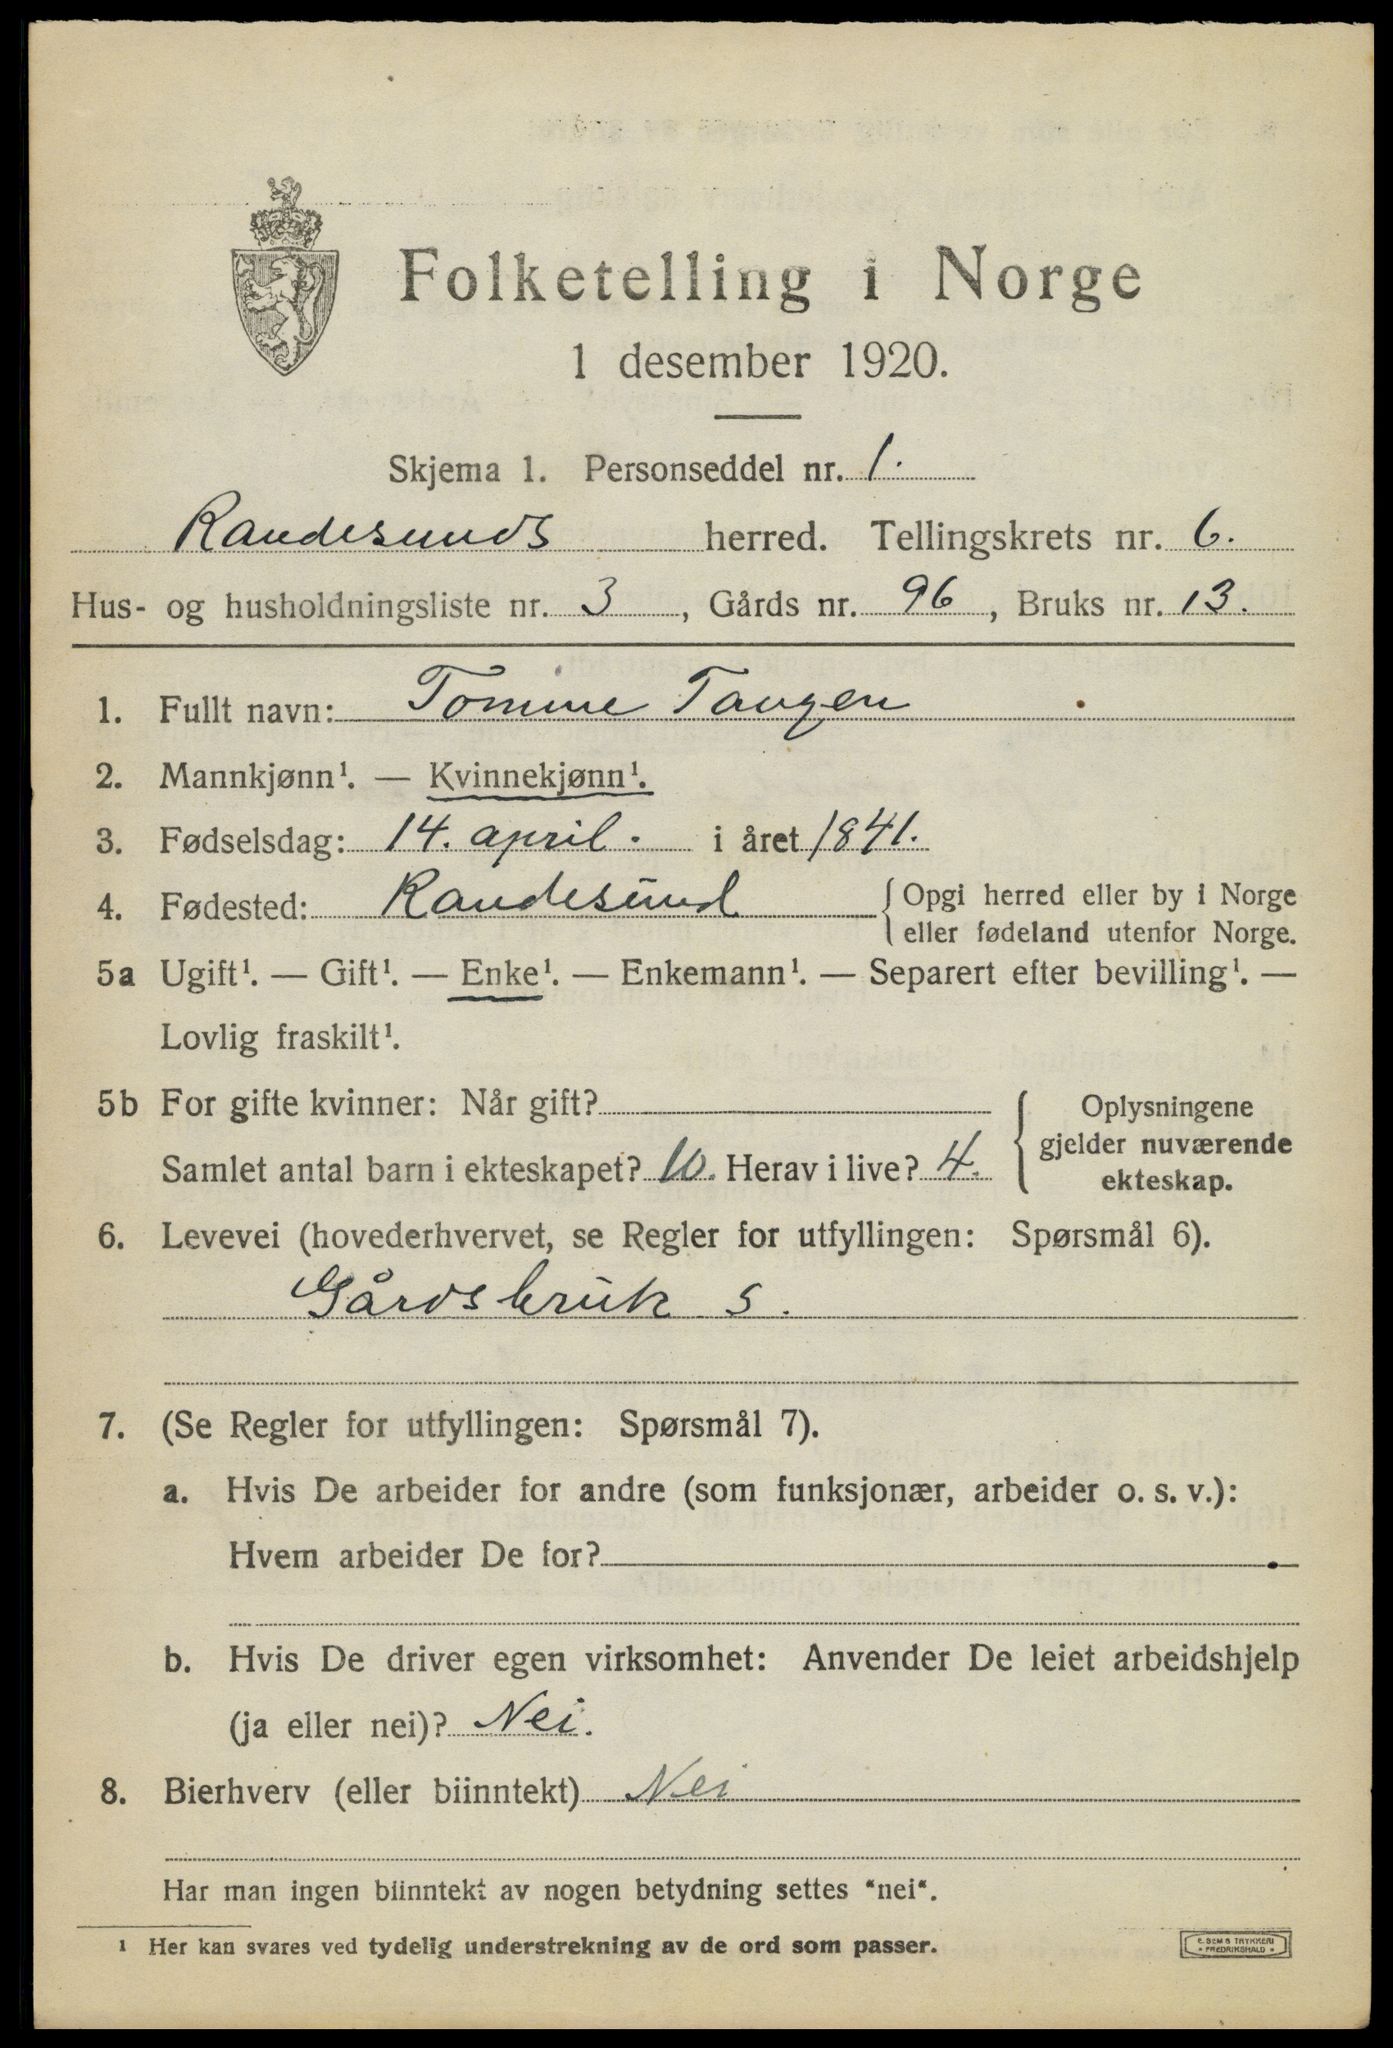 Folketelling i Norge
1 desember 1920.
Skjema 1. Personseddel nr. 1.
Randesunds herred. Tellingskrets nr. 6.
Hus- og husholdningsliste nr. 3, Gårds nr. 96, Bruks nr. 13.
1. Fullt navn: Tomine Tangen
2. Mannkjønn¹. — Kvinnekjønn¹.
3. Fødselsdag: 14. april. i året 1841.
4. Fødested: Randesund { Opgi herred eller by i Norge
eller fødeland utenfor Norge.
5a Ugift¹. — Gift¹. — Enke¹. — Enkemann¹. — Separert efter bevilling¹. —
Lovlig fraskilt¹.
5b For gifte kvinner: Når gift?
Samlet antal barn i ekteskapet? 10. Herav i live? 4.
Oplysningene
gjelder nuværende
ekteskap.
6. Levevei (hovederhvervet, se Regler for utfyllingen: Spørsmål 6).
Gårdsbruk s.
7. (Se Regler for utfyllingen: Spørsmål 7).
a. Hvis De arbeider for andre (som funksjonær, arbeider o. s. v.):
Hvem arbeider De for?
b. Hvis De driver egen virksomhet: Anvender De leiet arbeidshjelp
(ja eller nei)? Nei.
8. Bierhverv (eller biinntekt) Nei
Har man ingen biinntekt av nogen betydning settes "nei".
¹ Her kan svares ved tydelig understrekning av de ord som passer.
E. SEM'S TRYKKERI
* FREDRIKSHALD *